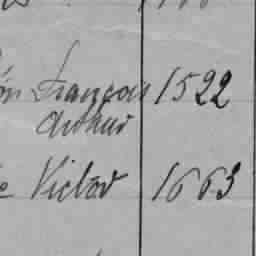 François 1522
Arthur
Victor 1663